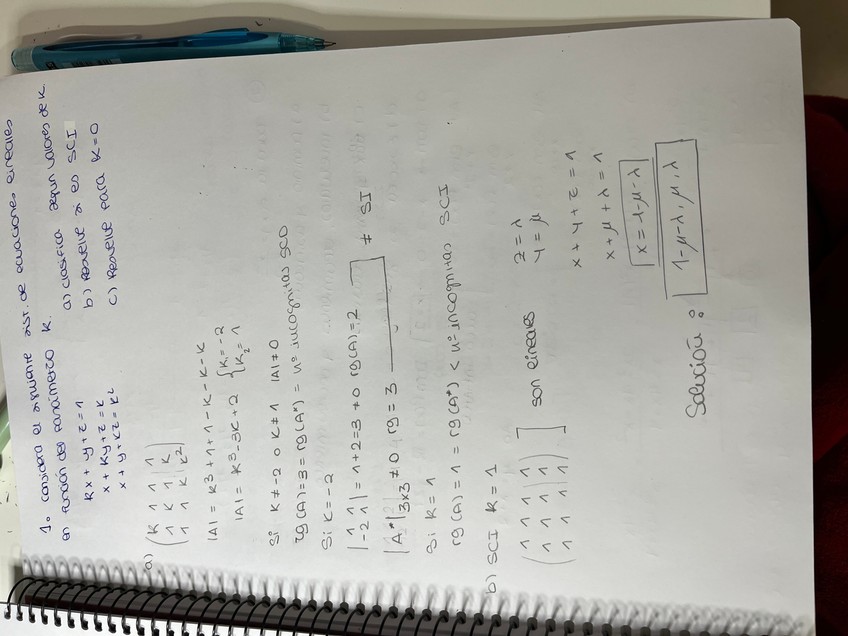 1. Considera el siguiente sist. de ecuaciones lineales
en función del parámetro K.
a) clasifica según valores de K
b) Resuelve si es SCI
c) Resuelve para K=0
Kx + y + z = 1
x + Ky + z = K
x + y + Kz = K²
a) (K 1 1 | 1
1 K 1 | K
1 1 K | K²)
|A| = K³ + 1 + 1 - K - K - K
|A| = K³ - 3K + 2 { K₁ = -2
K₂ = 1
Si K ≠ -2 o K ≠ 1 |A| ≠ 0
rg(A) = 3 = rg(A*) = nº incognitas SCD
Si K = -2
| 1 1
-2 1 | = 1 + 2 = 3 ≠ 0 rg(A) = 2
≠ SI
|A*| 3x3 ≠ 0 rg = 3
Si K = 1
rg(A) = 1 = rg(A*) < nº incognitas SCI
b) SCI K = 1
(1 1 1 | 1
1 1 1 | 1
1 1 1 | 1) ] son lineales
z = λ
y = μ
x + y + z = 1
x + μ + λ = 1
x = 1 - μ - λ
Solución: 1-μ-λ, μ, λ